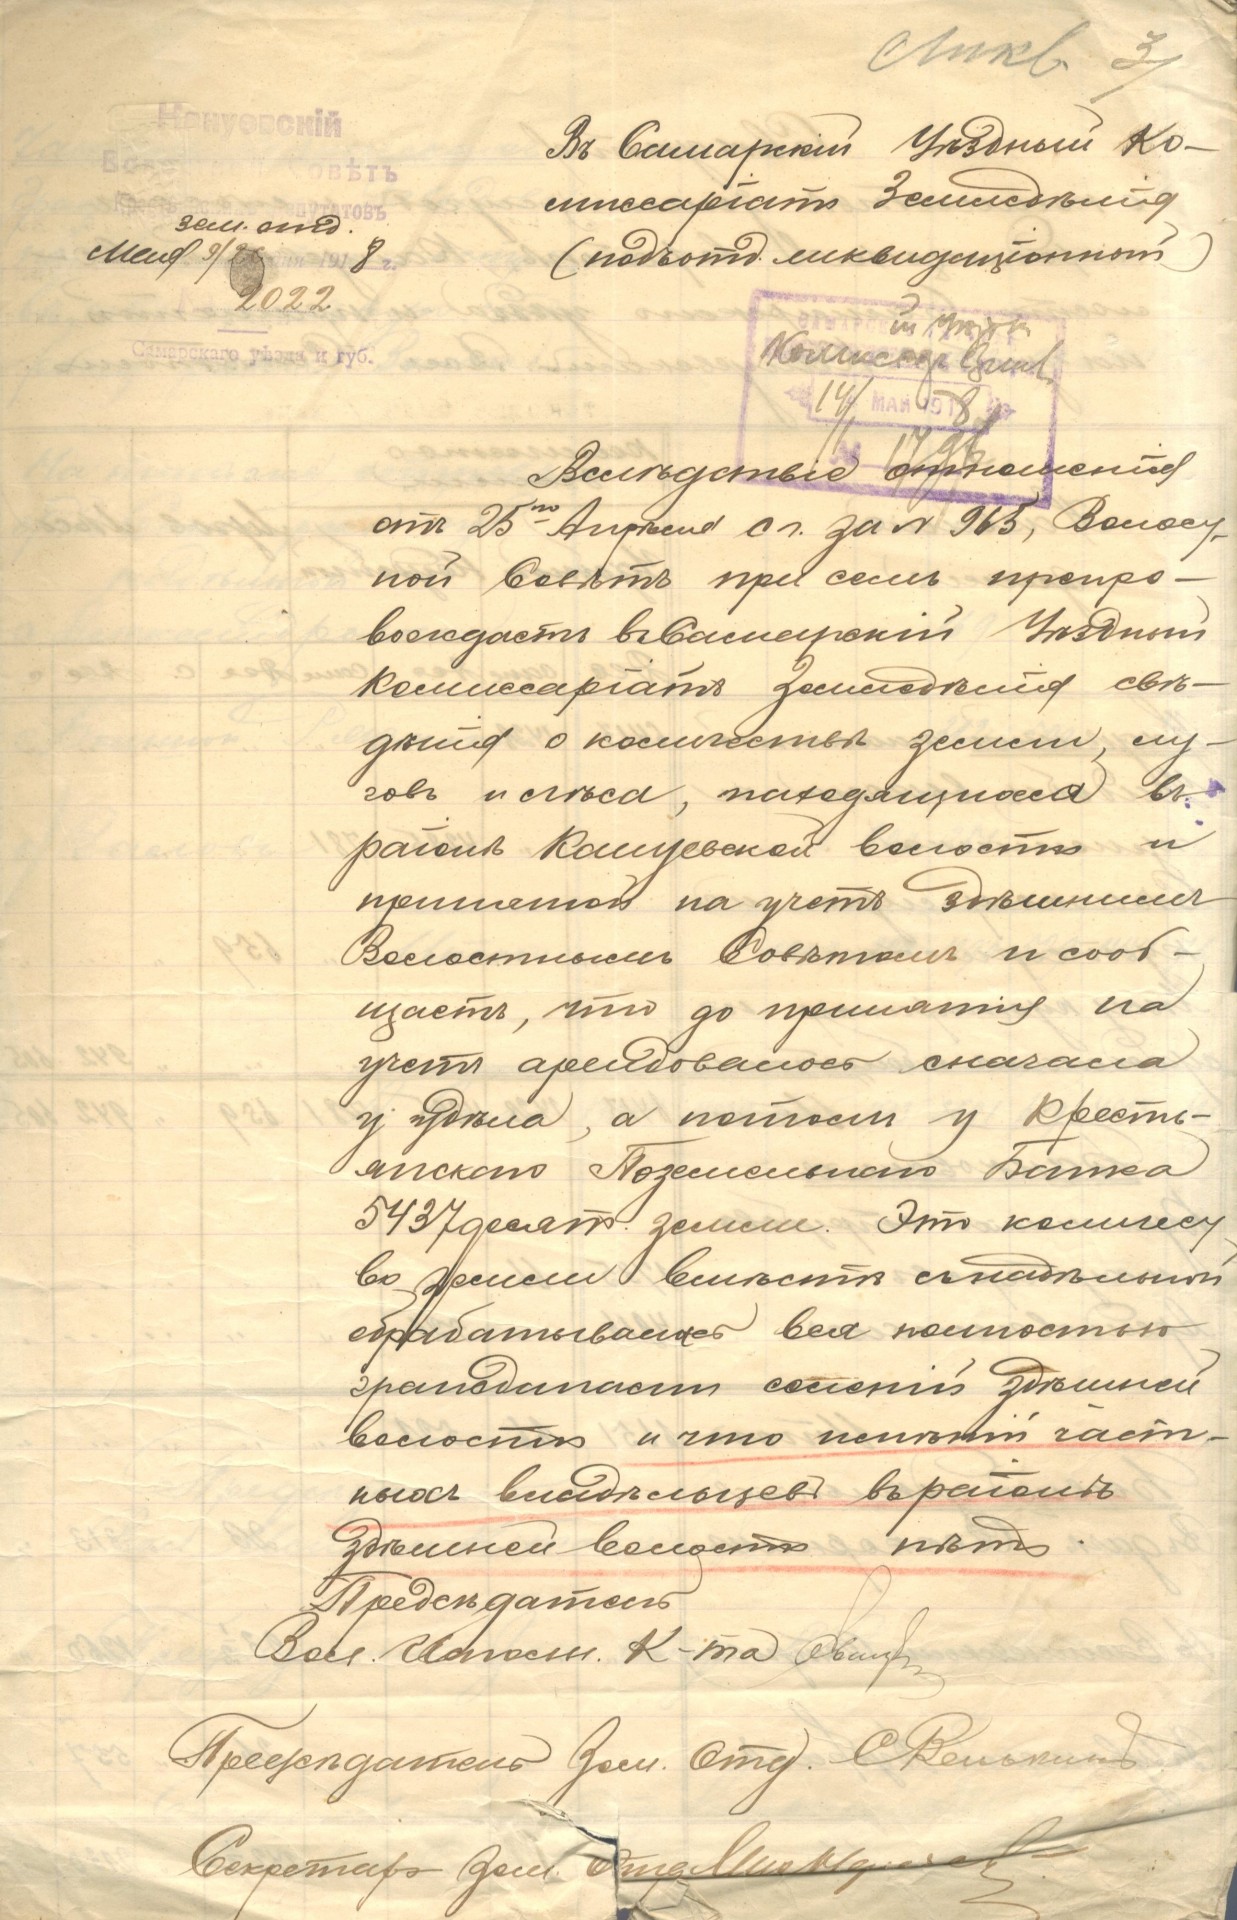 Ликв. 3/
Кануевскій
Совѣтъ
Крестьянскихъ депутатовъ
зем. отд.
Мая 9/26 1918 г.
2022
Самарскаго уѣзда и губ.
Въ Самарскій Уѣздный Ко-
миссаріатъ Земледѣлія
(подъотд. ликвидаціонный)
14/ МАЙ 1918
Вслѣдствіе отношенія
отъ 25го Апрѣля с г. за № 965, Волост-
ной Совѣтъ при семъ препро-
вождаетъ въ Самарскій Уѣздный
Комиссаріатъ Земледѣлія свѣ-
дѣнія о количествѣ земли, лу-
говъ и лѣса, находящихся въ
районѣ Кануевской волости и
принятой на учетъ здѣшнимъ
Волостнымъ Совѣтомъ и сооб-
щаетъ, что до принятія на
учетъ арендовалось сначала
у удѣла, а потомъ у Кресть-
янскаго Поземельнаго Банка
5437 десят. земли. Это количест-
во земли вмѣстѣ съ надѣльной
обрабатывалась вся полностью
гражданами селеній здѣшней
волости и что имѣній част-
ныхъ владѣльцевъ въ районѣ
здѣшней волости нѣтъ.
Предсѣдатель
Вол. Исполн. К-та
Предсѣдатель Зем. Отд.
Секретарь Зем. Отд.